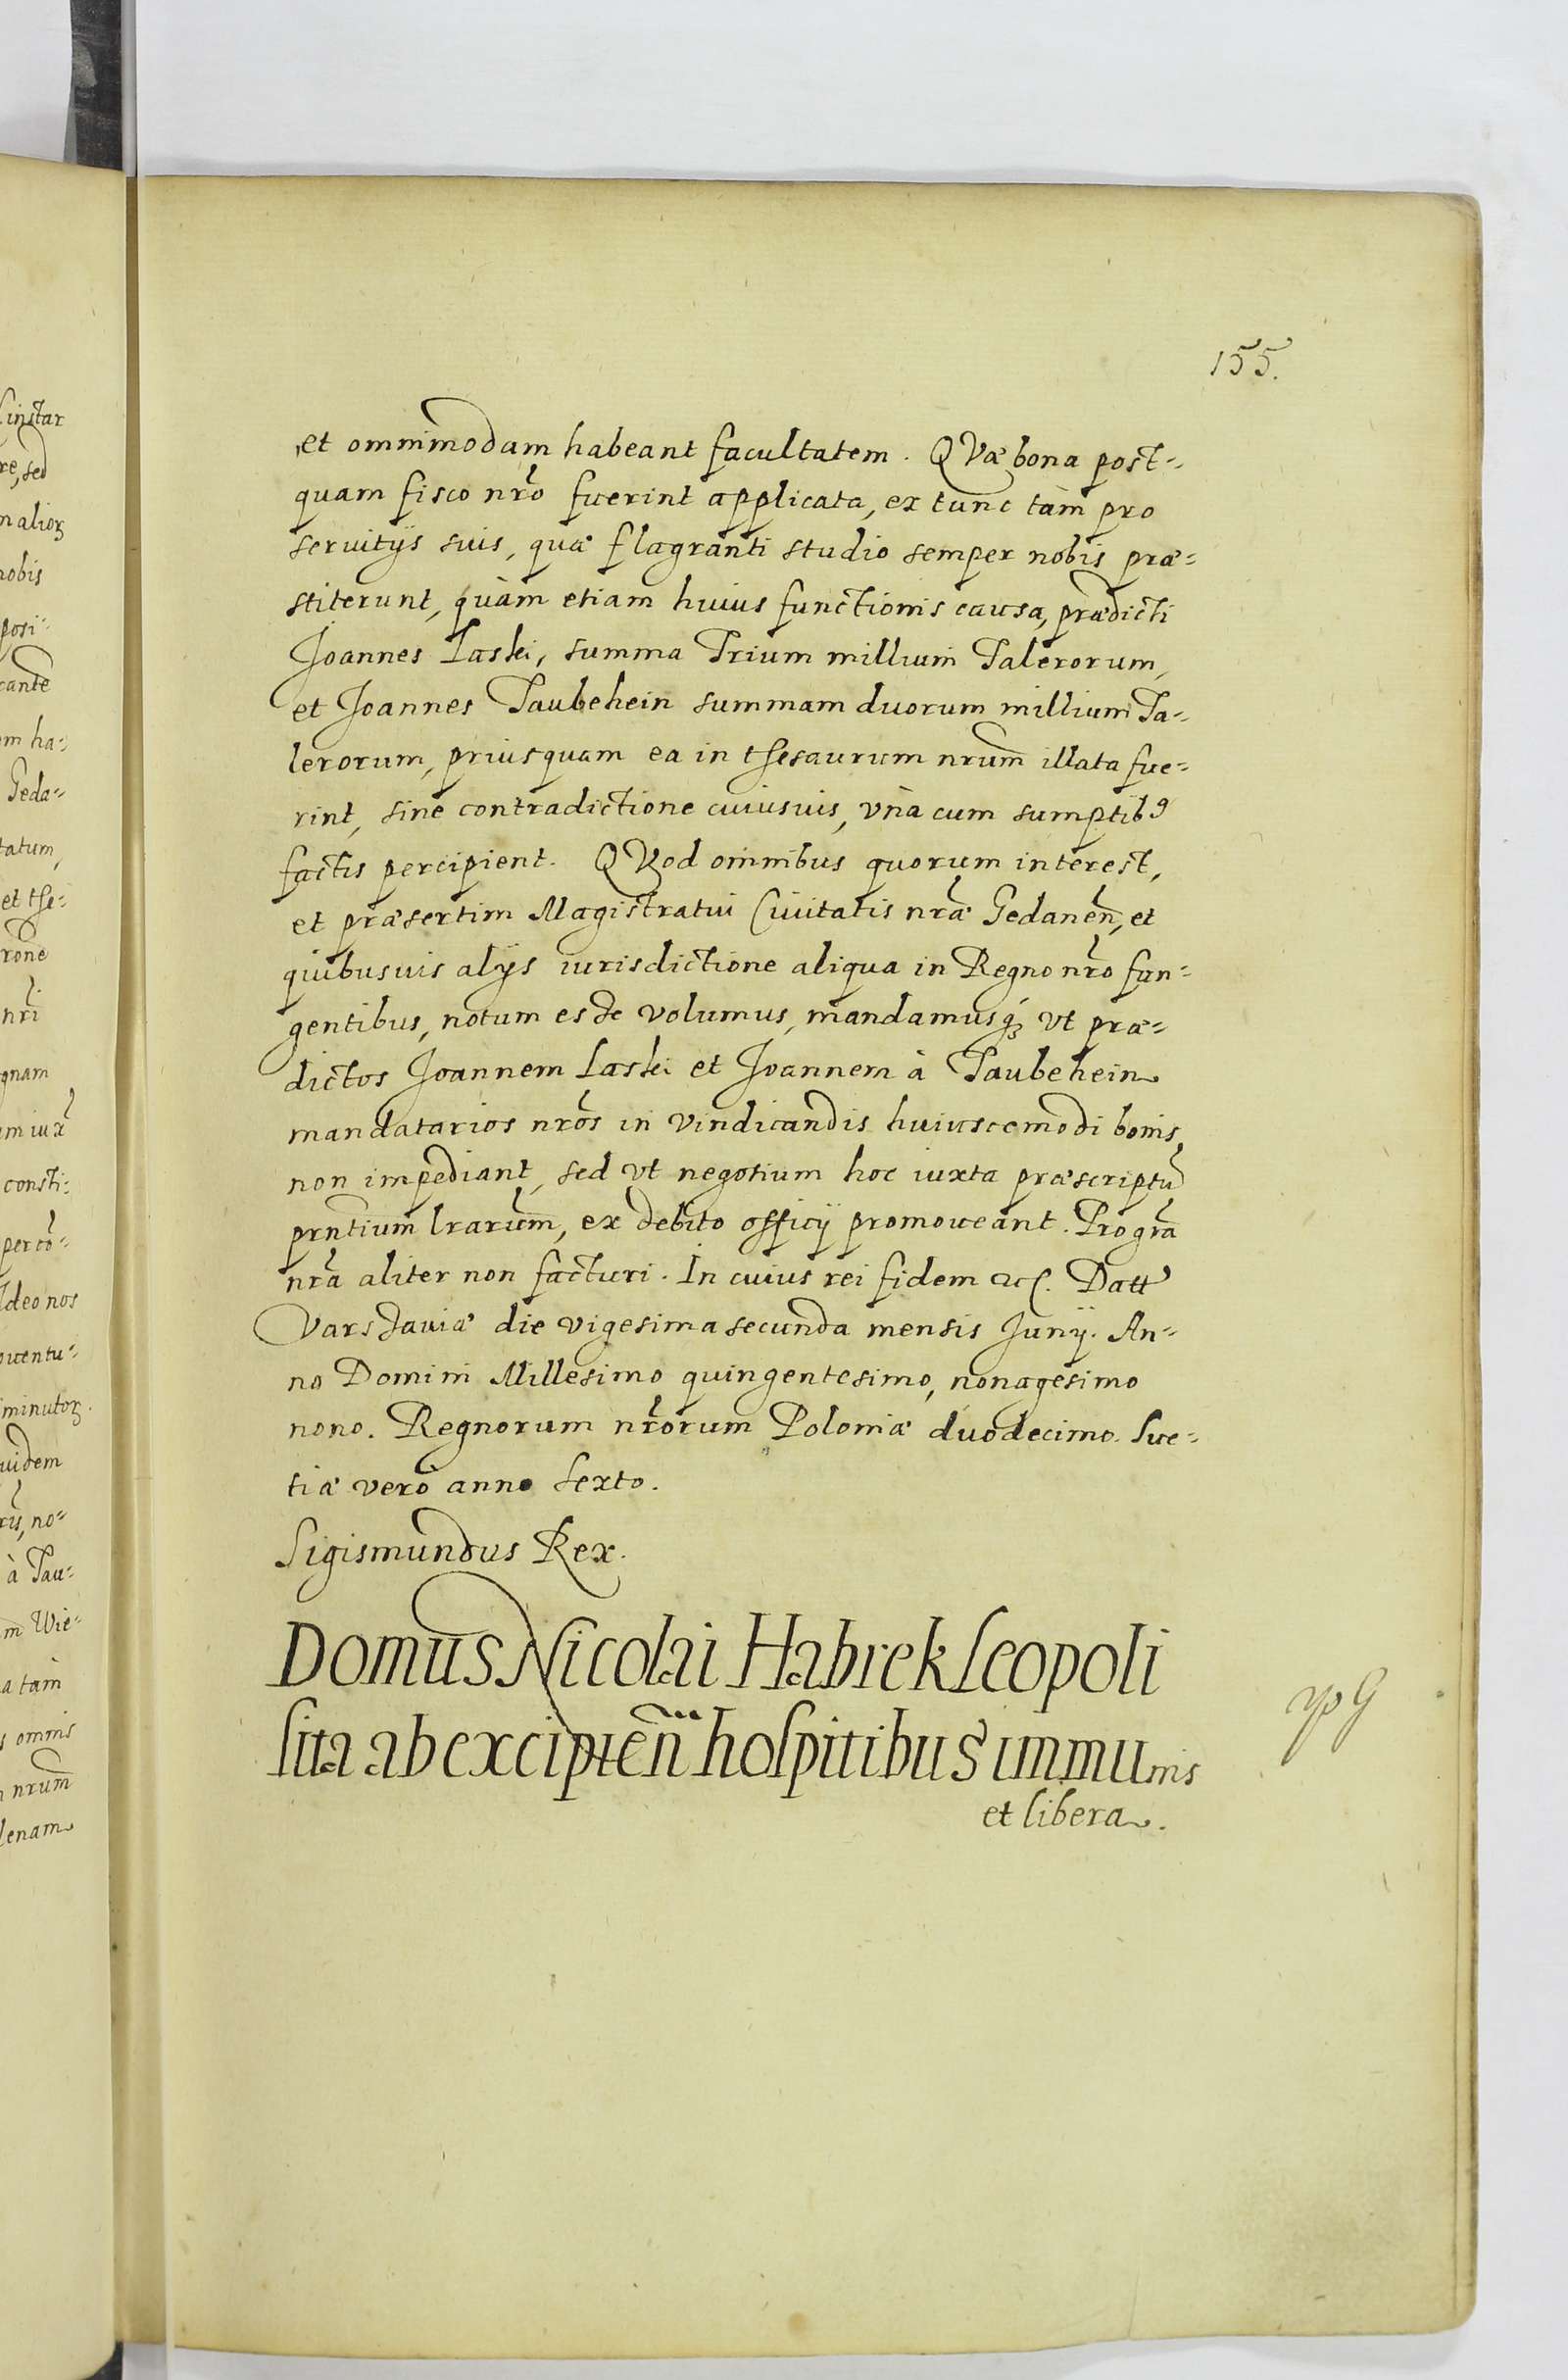 155.
et omnimodam habeant facultatem. QVæ bona post-
quam fisco nro fuerint applicata, ex tunc tàm pro
seruitijs suis, quæ flagranti studio semper nobis præ-
stiterunt, quàm etiam huius functionis causa, prædicti
Joannes Laski, summa Trium millium Talerorum,
et Joannes Taubehein summam duorum millium Ta-
lerorum, priusquam ea in thesaurum nrum illata fue-
rint, sine contradictione cuiusuis, vnà cum sumptib9
factis percipient. QVod omnibus quorum interest,
et præsertim Magistratui Ciuitatis nræ Gedanen, et
quibusuis alijs iurisdictione aliqua in Regno nro fun-
gentibus, notum esse volumus, mandamusq; vt præ-
dictos Joannem Laski et Joannem à Taubehein
mandatarios nros in vindicandis huiuscemodi bonis,
non impediant, sed vt negotium hoc iuxta præscriptū
prntium lrarum, ex debito officij promoueant. Pro gra
nra aliter non facturi. In cuius rei fidem etc. Datt
Varsauiæ die vigesima secunda mensis Junij. An-
no Domini Millesimo quingentesimo, nonagesimo
nono. Regnorum nrorum Poloniæ duodecimo. Sue-
tiæ verò anno sexto.
Sigismundus Rex.
Domus Nicolai Habrek Leopoli
sita ab excipien hospitibus immunis
et libera.
instar
re, sed
n alioꝝ
nobis
posi-
cande
m ha-
Geda-
tatum,
et the-
rone
nri
gnam
m iux
consti-
per cō-
Ideo nos
ouentu-
minutoꝝ.
uidem
ris, no-
à Tau-
m Wie-
a tàm
s omnis
nrum
lenam